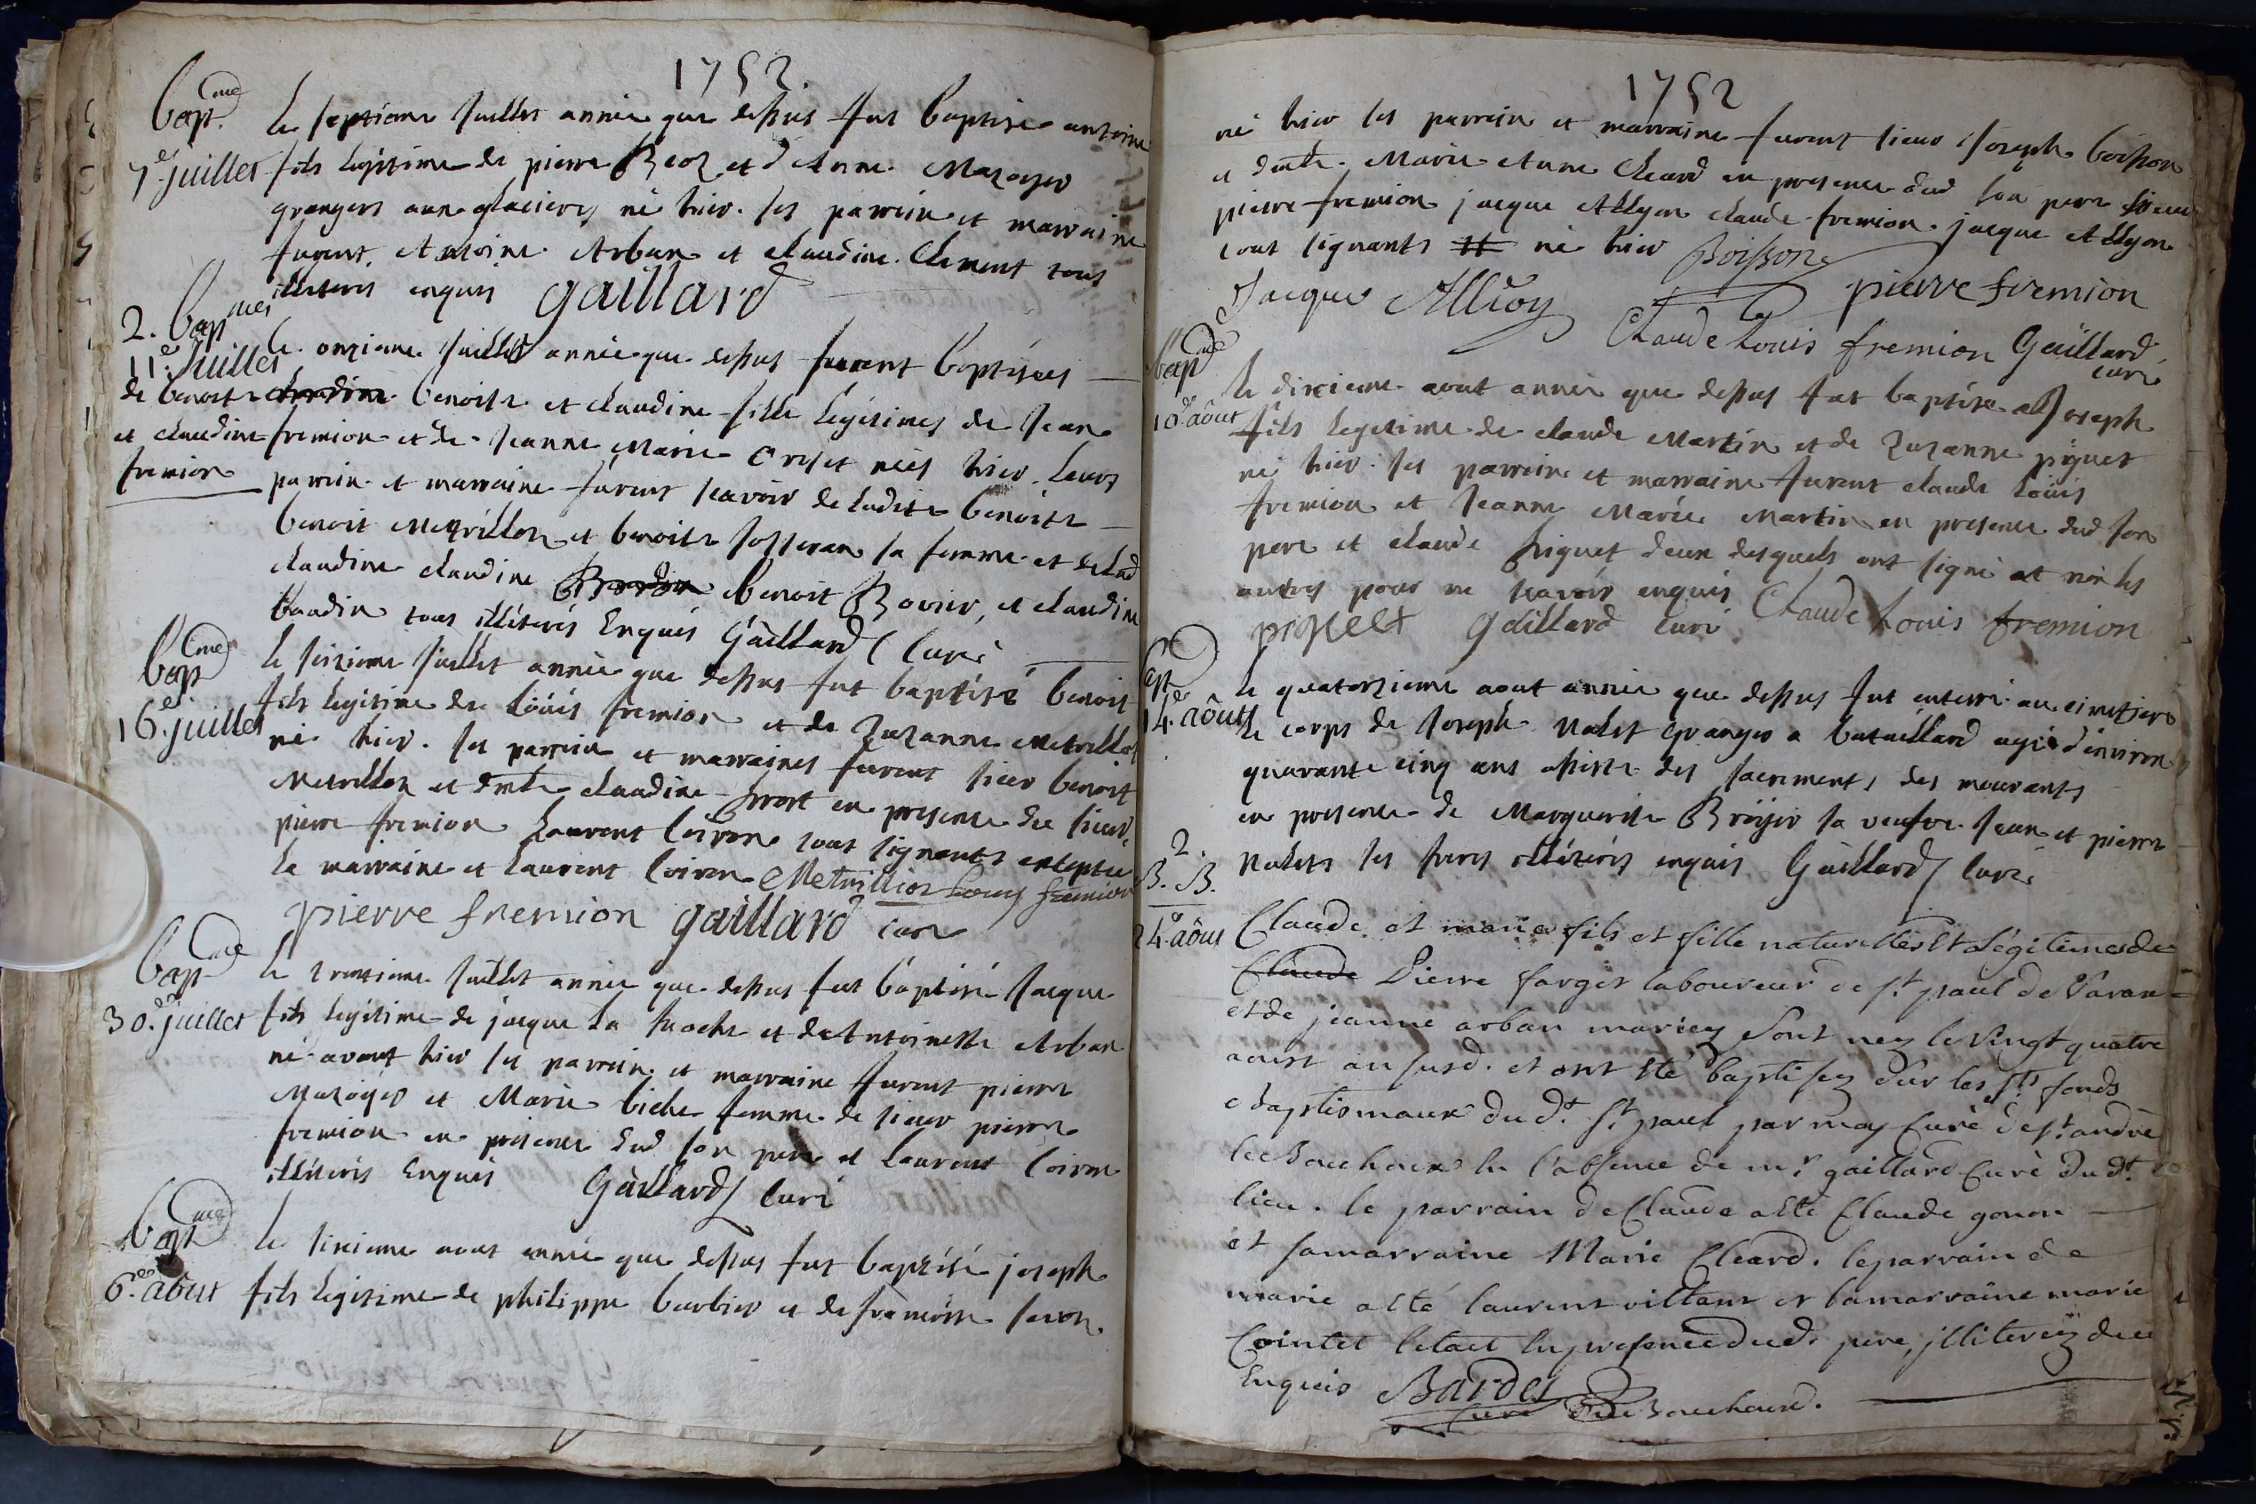 1752
bapme
7e juillet
le septieme juillet année que dessus fut baptisé antoine
fils legitime de pierre et d'Anne Mazoyer
grangers aux glacieres né hier. ses parrein et marraine
furent Antoine Arban et claudine Clement tous
illiterés enquis gaillard
2. bapmes
11e Juillet
de benoite
et claudine
fremion
le onzieme juillet année que dessus furent baptisées
claudine benoite et claudine fille legitimes de Jean
fremion et de Jeanne Marie nées hier. leurs
parrein et marraine furent scavoir de ladite benoite
benoit Metrillot et benoite Josseran sa femme et delad
claudine claudine benoit Bovier, et claudine
baudin tous illiterés Enquis Gaillard Curé
bapme
16e juillet
le seizieme juillet année que dessus fut baptisé benoit
fils legitime de Louis fremion et de Zuzanne Metrillot
né hier. ses parrein et marraines furent sieur benoit
Metrillot et dmlle claudine prost en presence du sieur
pierre fremion Laurent Coiron tous signants exceptée
la marraine et Laurent Coiron Metrillot Louis fremion
pierre fremion gaillard curé
bapme
30e juillet
le trentieme juillet année que dessus fut baptisé Jacque
fils legitime de jacque La Roche et de Antoinette Arban
né avant hier ses parrein et marraine furent pierre
Mazoyer et Marie biche femme de sieur pierre
fremion en presence dud son pere et Laurent Coiron
illiterés Enquis Gaillard Curé
bapme
6e aout
le sixieme aout année que dessus fut baptisé joseph
fils legitime de philippe barbier et de francoise
1752
né hier ses parrein et marraine furent sieur Joseph boisson
et dmlle Marie Anne Cleard en presence dud son pere sieur
pierre fremion jacque Allyon claude fremion jacque Allyon
tous signants né hier Boisson
Jacque pierre fremion
Claude Louis fremion Gaillard
curé
bapme
10e aout
le dixieme aout année que dessus fut baptisé Joseph
fils legitime de claude Martin et de Zuzanne piguet
né hier. ses parrein et marraine furent claude Louis
fremion et Jeanne Marie Martin en presence dud son
pere et claude piguet deux desquels ont signé et non les
autres pour ne scavoir enquis Claude Louis fremion
Gaillard Curé
14e aout
le quatorzieme aout année que dessus fut enterré au cimetiere
le corps de Joseph Nalet granger a bataillard agé d'environ
quarante cinq ans assisté des sacrements des mourants
en presence de Marguerite Broyer sa veufve Jean et pierre
Nalets ses freres illiterés enquis Gaillard Curé
2.
B. B.
24e aout
Claude et marie fils et fille naturelles et Légitimes de
Claude Pierre farget laboureur de st paul de Varax
et de jeanne arban mariez Sont nez le Vingt quatre
aoust an susd. et ont été baptisez sur les sts fonds
baptismaux dudt. st paul par moy Curé de st andré
le Bouchoux En l'absence de mr gaillard Curé dudt.
lieu. le parrain de Claude a été Claude gonon
et sa marraine Marie Cleard. le parrain de
marie a été laurent villant et la marraine marie
Cointet le tout En presence dud. pere, jlliterez de ce
Enquis Bardet
Curé du Bouchoux.